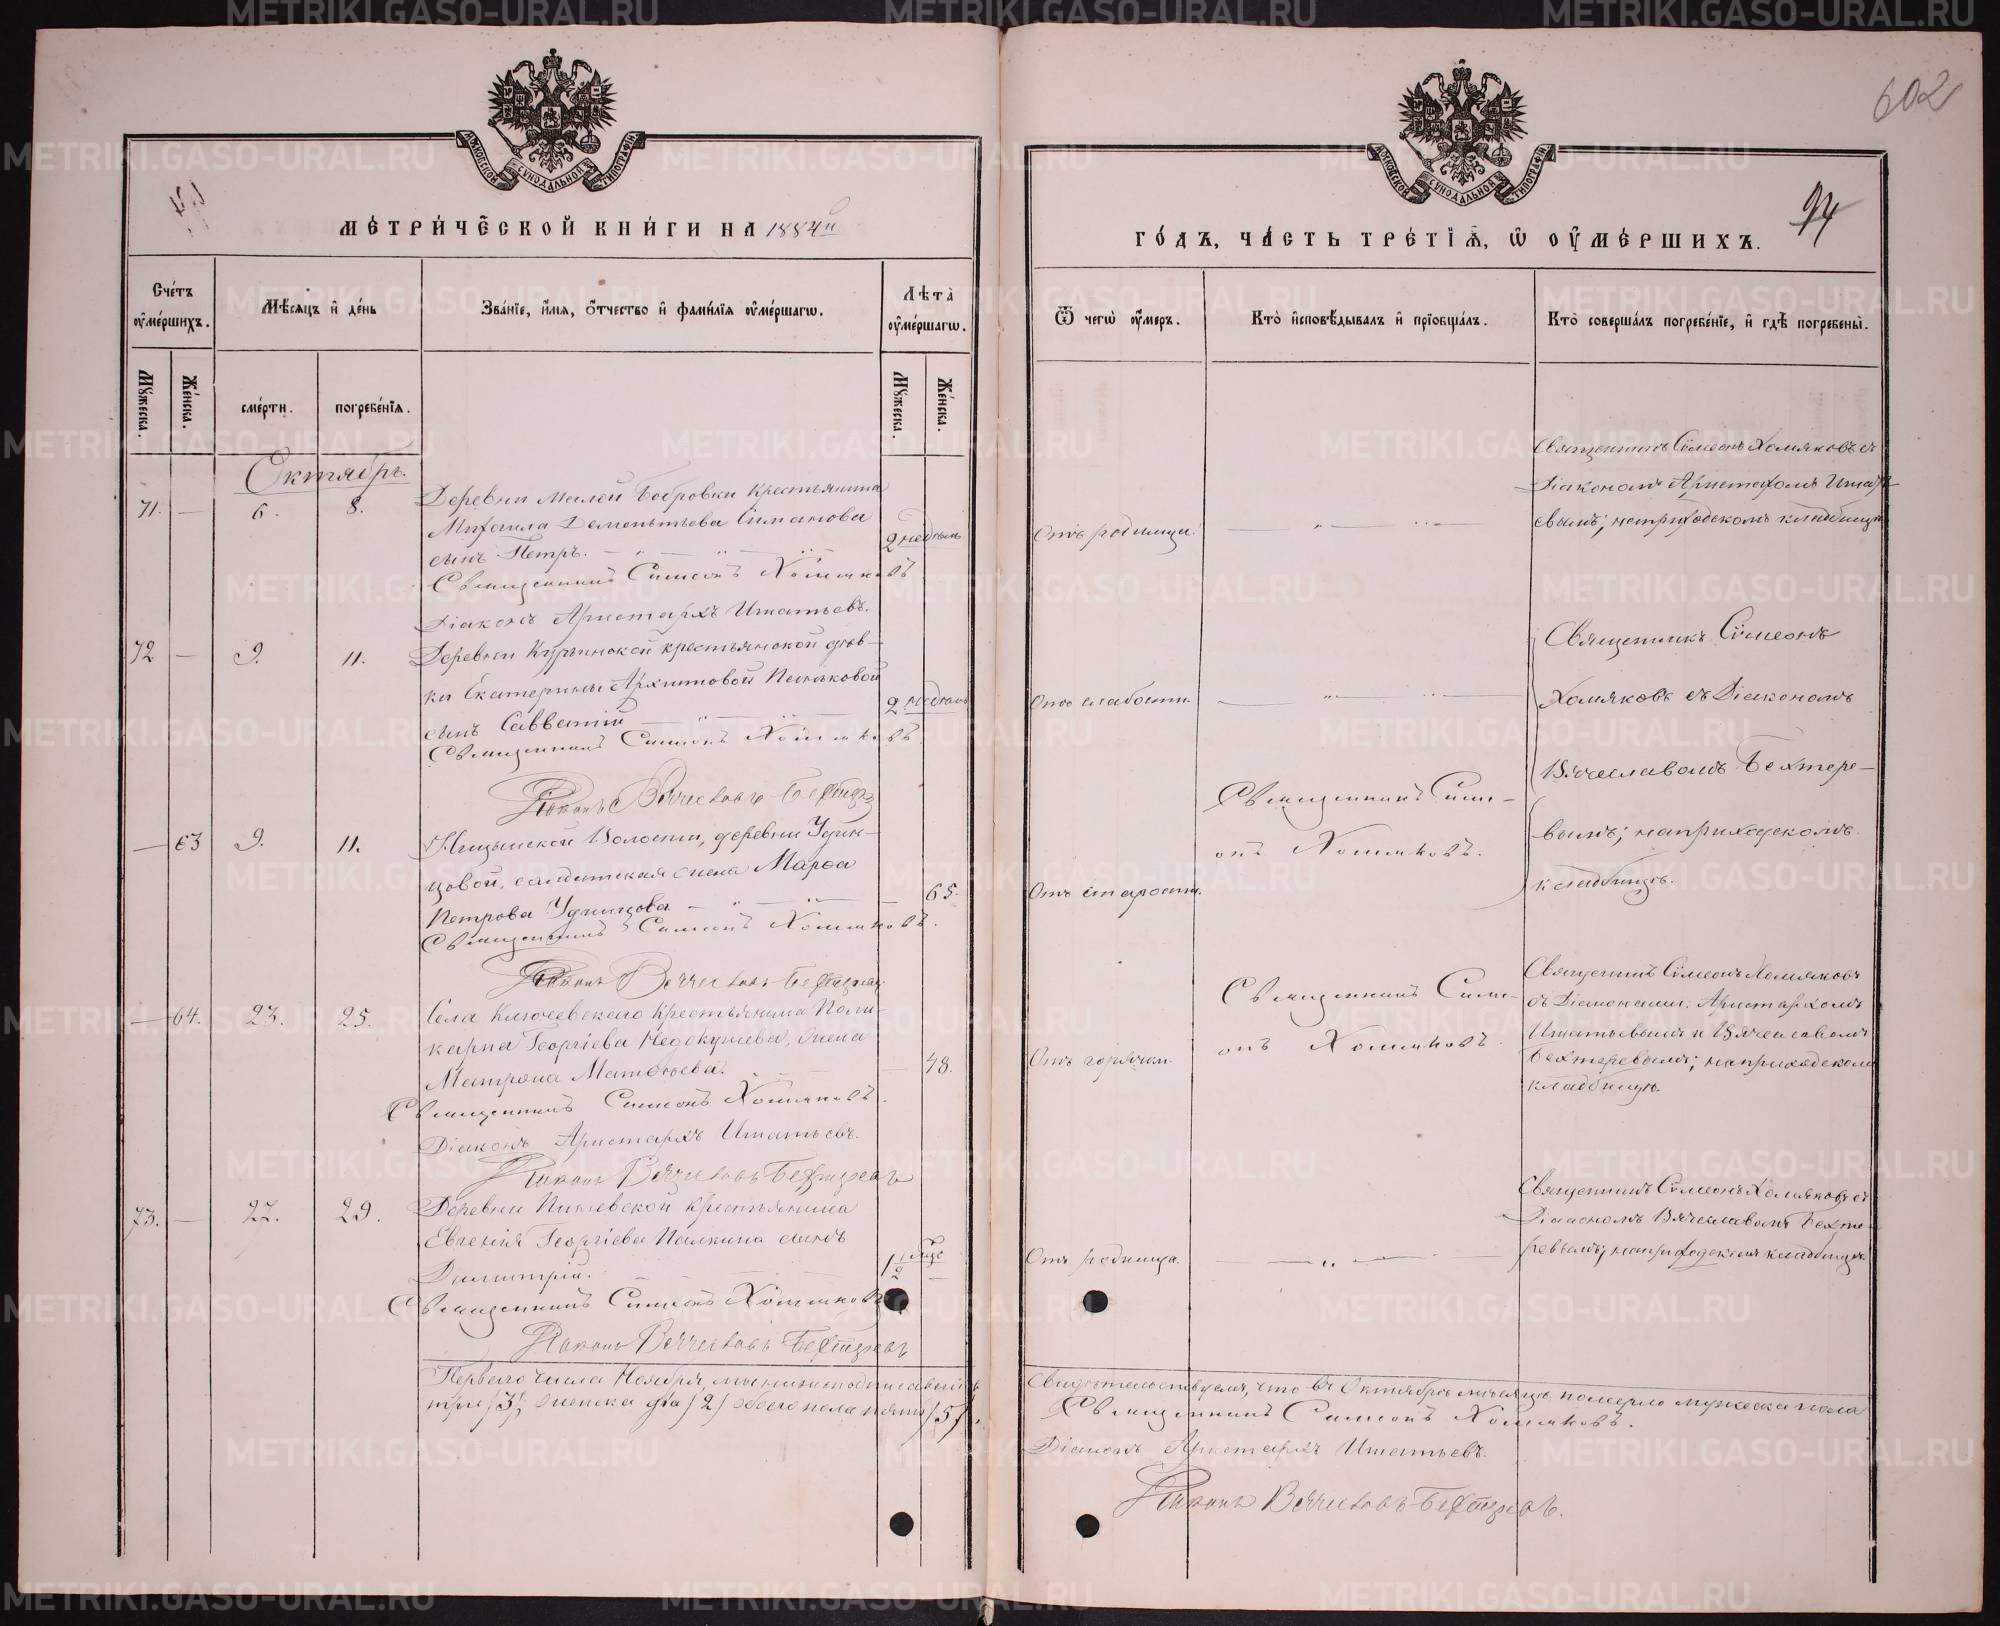 602
94
МОСКОВСКОЙ СУНОДАЛЬНОЙ ТИПОГРАФІИ.
МОСКОВСКОЙ СУНОДАЛЬНОЙ ТИПОГРАФІИ.
МЕТРИЧЕСКОЙ КНИГИ НА 1884й
ГОДЪ, ЧАСТЬ ТРЕТІѦ, Ѡ ОУМЕРШИХЪ.
Счетъ оумершихъ.
Мѣсяцъ и день
Званіе, имя, отчество и фамилія оумершагѡ.
Лѣта оумершагѡ.
Ѿ чегѡ оумеръ.
Кто исповѣдывалъ и пріобщалъ.
Кто совершалъ погребеніе, и гдѣ погребены.
Мужеска.
Женска.
смерти.
погребенія.
Мужеска.
Женска.
Октябрь.
71. — 6. 8.
Деревни Малой Бобровки крестьянина
Михаила Дементьева Симанова
сынъ Петръ.
2 недѣль
Отъ родимца.
Священникъ Сѵмеонъ Хомяковъ съ
Діакономъ Аристархомъ Игнать-
евымъ; на приходскомъ кладбищѣ
Священникъ Симеонъ Хомяковъ
Діаконъ Аристархъ Игнатьевъ.
72 — 9. 11.
Деревни Курьинской крестьянской дѣв-
ки Екатерины Архиповой Пеньковой
сынъ Савватій
2 недѣль
Отъ слабости.
Священникъ Симеонъ Хомяковъ
Діаконъ Вячеславъ Бехтерев
Священникъ Сѵмеонъ
Хомяковъ съ Діакономъ
Вячеславомъ Бехтере-
вымъ; на приходскомъ
кладбищѣ.
— 63 9. 11.
Ницынской Волости, деревни Удин-
цовой, солдатская жена Марѳа
Петрова Удинцова
65.
Отъ старости.
Священникъ Симе-
онъ Хомяковъ.
Священникъ Симеонъ Хомяковъ.
Діаконъ Вячеславъ Бехтерев
— 64. 23. 25.
Села Ключевскаго Крестьянина Поли-
карпа Георгіева Недокушева, жена
Матрона Матѳѣева.
48.
Отъ горячки.
Священникъ Симе-
онъ Хомяковъ.
Священникъ Сѵмеонъ Хомяковъ
съ Діаконами: Аристархомъ
Игнатьевымъ и Вячеславомъ
Бехтеревымъ; на приходскомъ
кладбищѣ.
Священникъ Симеонъ Хомяковъ.
Діаконъ Аристархъ Игнатьевъ.
Діаконъ Вячеславъ Бехтеревъ
73. — 27. 29.
Деревни крестьянина
Евгенія Георгіева Палкина сынъ
Димитрій.
1 1/2 мѣс
Отъ родимца.
Священникъ Сѵмеонъ Хомяковъ съ
Діакономъ Вячеславомъ Бехте-
ревымъ; на приходскомъ кладбищѣ
Священникъ Симеонъ Хомяковъ
Діаконъ Вячеславъ Бехтеревъ
Перваго числа Ноября, мы нижеподписавшіеся
Свидѣтельствуемъ, что въ Октябрѣ мѣсяцѣ померло мужеска пола
три /3/, женска два /2/ обоего пола пять /5/.
Священникъ Симеонъ Хомяковъ.
Діаконъ Аристархъ Игнатьевъ.
Діаконъ Вячеславъ Бехтеревъ.
METRIKI.GASO-URAL.RU